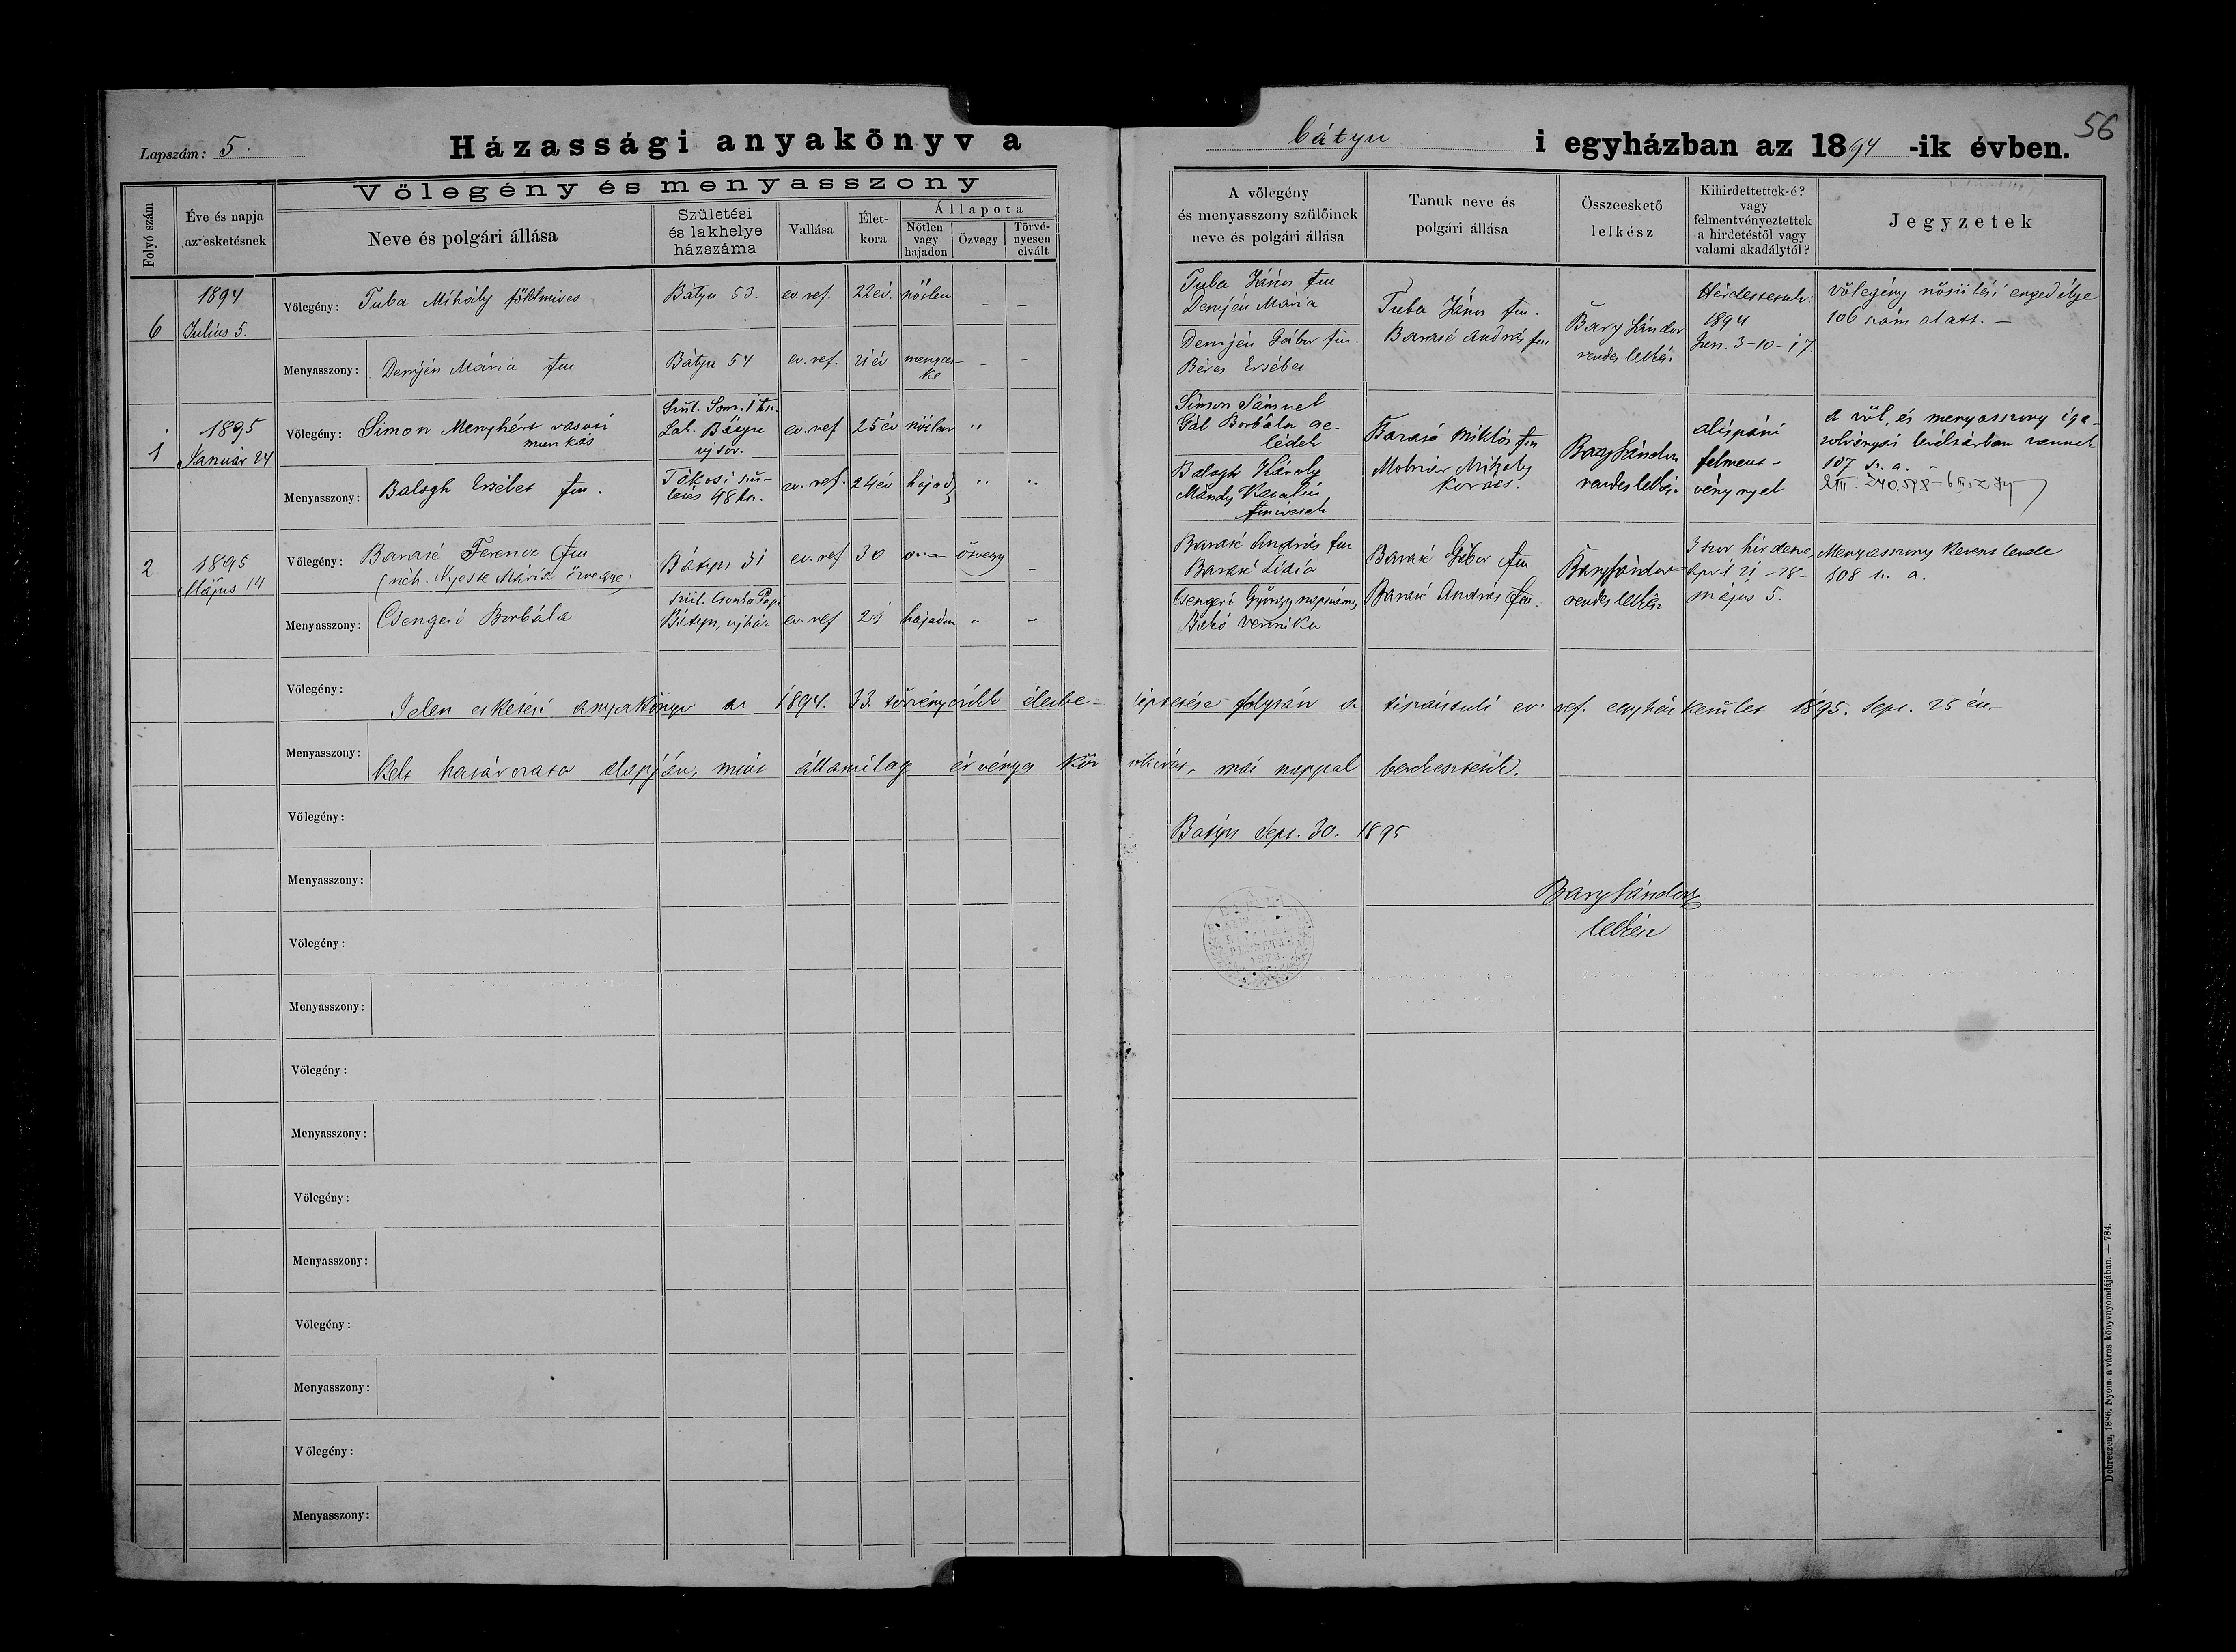 56
Lapszám: 5.
Házassági anyakönyv a bátyu i egyházban az 1894 -ik évben.
Folyó szám
Éve és napja az esketésnek
Vőlegény és menyasszony
Neve és polgári állása
Születési és lakhelye házszáma
Vallása
Élet-kora
Állapota
Nőtlen vagy hajadon
Özvegy
Törvé-nyesen elvált
A vőlegény és menyasszony szülőinek neve és polgári állása
Tanuk neve és polgári állása
Összeeskető lelkész
Kihirdettettek-é? vagy felmentvényeztettek a hirdetéstől vagy valami akadálytól?
Jegyzetek
6
1894
Julius 5.
Vőlegény: Tuba Mihály földmives
Bátyu 53.
ev. ref.
22 év.
nőtlen
Tuba János fm
Demjén Mária
Menyasszony: Demjén Mária fm
Bátyu 54
ev. ref.
21 év
menyecs-
ke
Demjén Gábor fm.
Béres Erzsébet
Tuba János fm.
Baraté András fm
Bary Sándor
rendes lelkész
Hirdettettek:
1894
Jun. 3-10-17.
Vőlegény nősülési engedélye
106 szám alatt. —
1
1895
Január 24
Vőlegény: Simon Menyhért vasuti
munkás
Szül. Som.
Lak. Bátyu
ujsor.
ev. ref
25 év
nőtlen
Simon Sámuel
Gál Borbála cse-
lédek
Menyasszony: Balogh Erzsébet fm.
Tákosi szü-
letés 48 hsz.
ev. ref.
24 év
hajad
Balogh Károly
Mándy Katalin
Baraté Miklós fm
Molnár Mihály
kovács.
Bary Sándor
rendes lelkész
alispáni
felment-
vénynyel
A vől. és menyasszony iga-
zolványai levéltárban vannak
107 sz. a. -
2
1895
Május 14
Vőlegény: Baraté Ferencz fm
(néh. Nyeste Mária özvegye)
Bátyu 31
ev. ref
30
özvegy
Baraté András fm
Baraté Lidia
Menyasszony: Csengeri Borbála
szül. Csonka Papi
Bátyu, ujház
ev. ref
21
hajadon
Csengeri György napszámos
Bakó Veronika
Baraté Gábor fm
Baraté András fm.
Bary Sándor
rendes lelkész
3 szor hirdetve,
April 21 - 28 -
május 5.
Menyasszony keresztlevele
108 sz. a.
Vőlegény:
Jelen esketési anyakönyv az 1894. 33. törvényczikk életbe- léptetése folytán a tiszántuli ev. ref. egyházkerület 1895. Sept. 25 én
Menyasszony:
kelt határozata alapján, mint államilag érvényes köz okirat, mai nappal berekesztetik.
Vőlegény:
Bátyu Sept. 30. 1895
Menyasszony:
Bary Sándor
lelkész
Vőlegény:
Menyasszony:
Vőlegény:
Menyasszony:
Vőlegény:
Menyasszony:
Vőlegény:
Menyasszony:
Vőlegény:
Menyasszony:
Debreczen, 1886. Nyom. a város könyvnyomdájában. — 784.